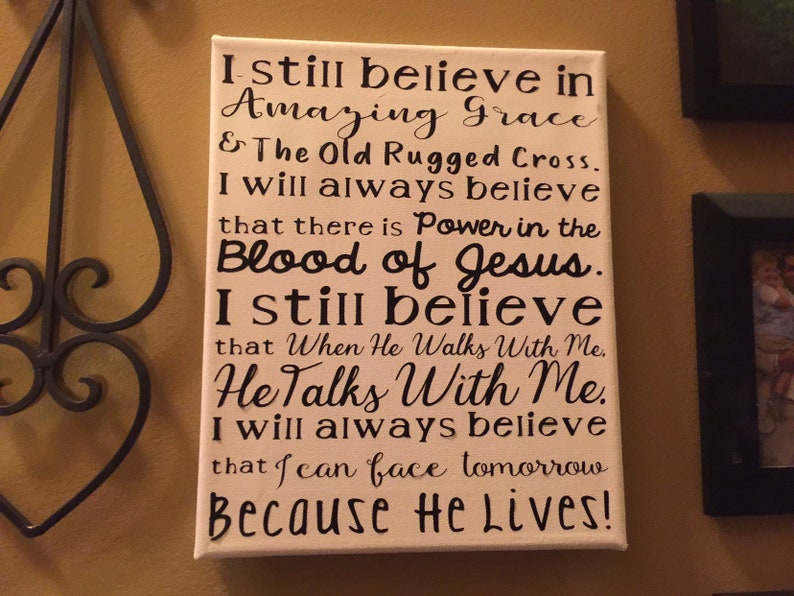 I still believe in
Amazing Grace
& The Old Rugged Cross.
I will always believe
that there is Power in the
Blood of Jesus.
I still believe
that When He Walks With Me,
He Talks With Me.
I will always believe
that I can face tomorrow
Because He Lives!